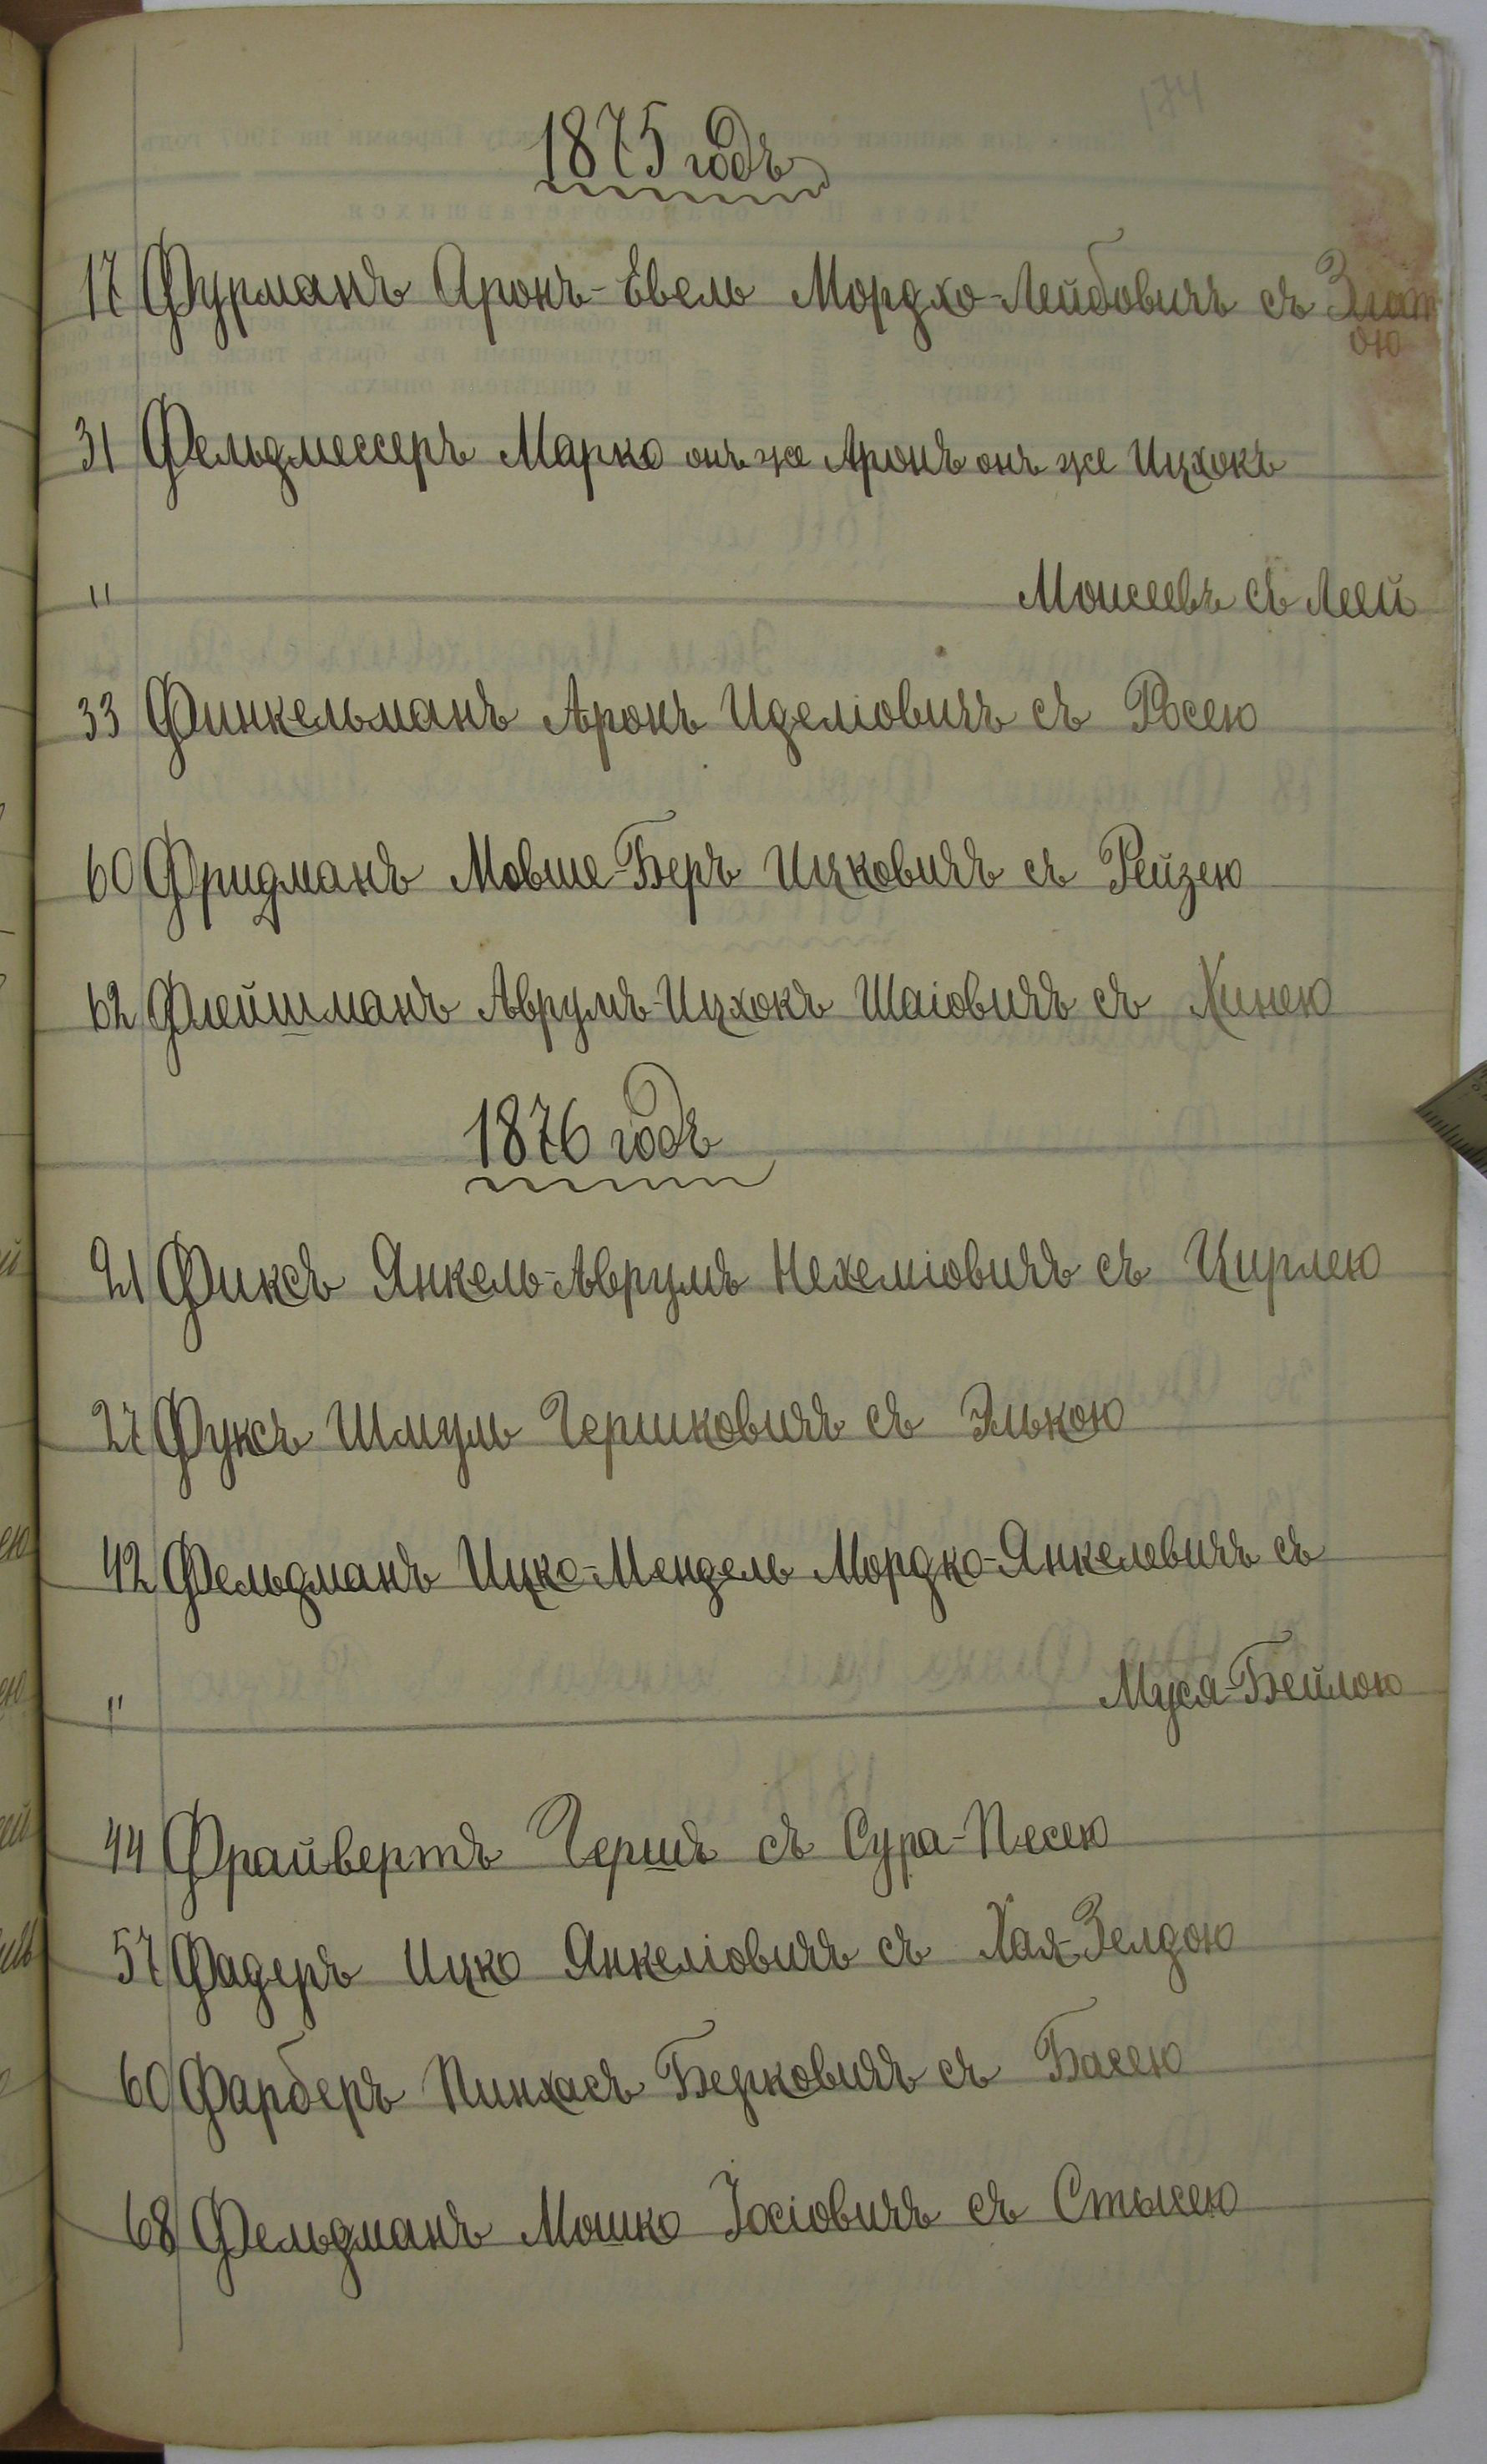 174
1875 годъ
17 Фурманъ Аронъ-Евель Мордхо-Лейбовичъ съ Злат
ою
31 Фельдмессеръ Марко онъ же Аронъ онъ же Ицхокъ
" Моисеевъ съ Леей
33 Финкельманъ Аронъ Иделіовичъ съ Росею
60 Фридманъ Мовше-Беръ Ицковичъ съ Рейзею
62 Флейшманъ Аврумъ-Ицхокъ Шаіовичъ съ Хинею
1876 годъ
21 Фиксъ Янкель-Аврумъ Нехеміовичъ съ Цирлею
27 Фуксъ Шмуль Гершковичъ съ Элькою
42 Фельдманъ Ицко-Мендель Мордко-Янкелевичъ съ
" Муся-Бейлою
44 Фрайвертъ Гершъ съ Сура-Песею
57 Фадеръ Ицко Янкеліовичъ съ Хая-Зелдою
60 Фарберъ Пинхасъ Берковичъ съ Басею
68 Фельдманъ Мошко Іосіовичъ съ Стысею